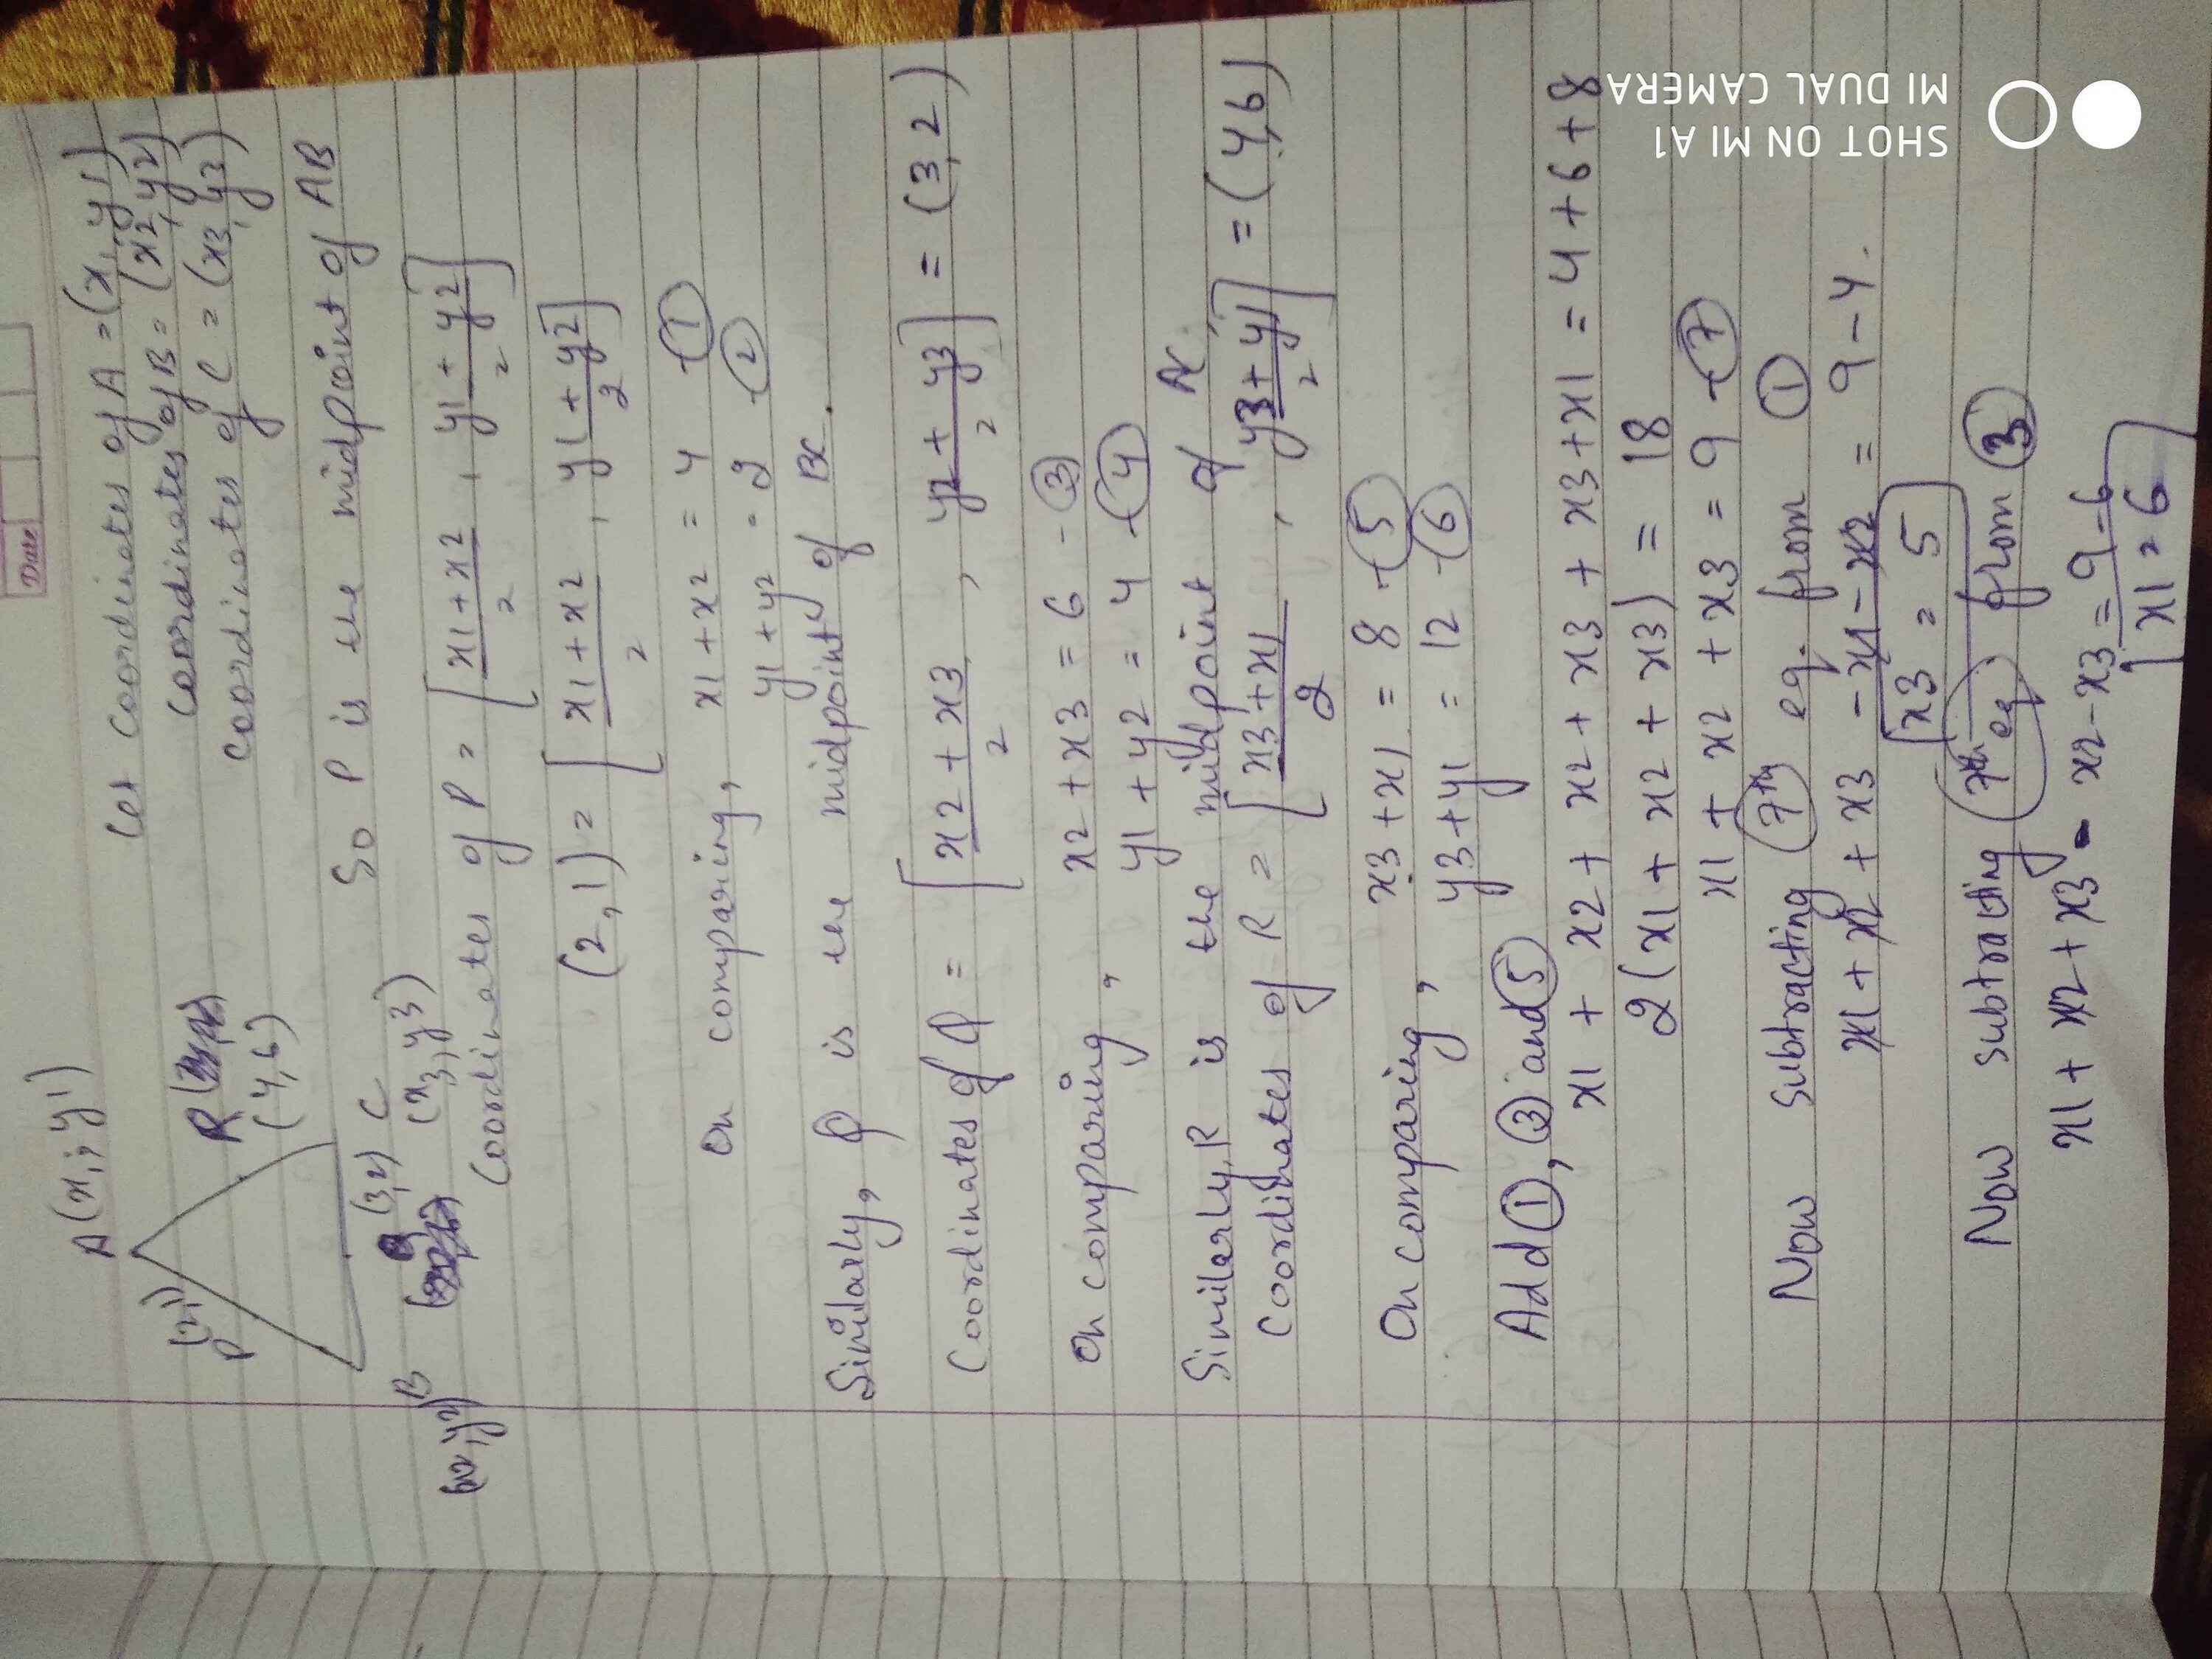 Date
A(x1, y1)
P (2,1)
R
(4,6)
(3,2)
C
(x3, y3)
B
Let coordinates of A = (x1, y1)
coordinates of B = (x2, y2)
coordinates of C = (x3, y3)
So P is the midpoint of AB
Coordinates of P = [x1+x2/2 , y1+y2/2]
(2,1) = [x1+x2/2 , y1+y2/2]
On comparing, x1+x2 = 4 -①
y1+y2 = 2 -②
Similarly, Q is the midpoint of BC.
Coordinates of Q = [x2+x3/2 , y2+y3/2] = (3,2)
On comparing, x2+x3 = 6 -③
y1+y2 = 4 -④
Similarly, R is the midpoint of AC.
Coordinates of R = [x3+x1/2 , y3+y1/2] = (4,6)
On comparing, x3+x1 = 8 -⑤
y3+y1 = 12 -⑥
Add ①, ③ and ⑤
x1 + x2 + x2 + x3 + x3+x1 = 4+6+8
2(x1 + x2 + x3) = 18
x1 + x2 + x3 = 9 -⑦
Now subtracting 7th eq. from ①
x1 + x2 + x3 - x1 - x2 = 9-4.
x3 = 5
Now subtracting 7th eq from ③
x1 + x2 + x3 - x2-x3 = 9-6
x1 = 6
SHOT ON MI A1
MI DUAL CAMERA